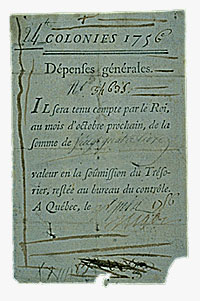 24tt COLONIES 1756
Dépenses générales.
No 34608.
IL sera tenu compte par le Roi,
au mois d'octobre prochain, de la
somme de
valeur en la soumission du Tréso-
rier, restée au bureau du contrôle.
A Québec, le